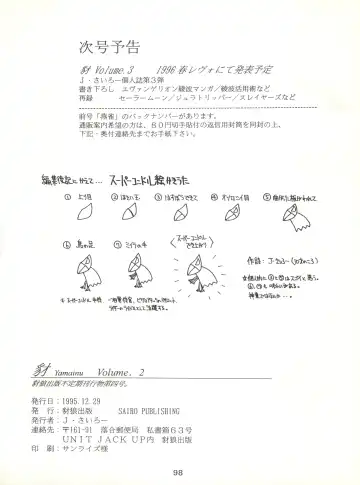 次号予告
豺 Volume.3　　1996春レヴォにて発表予定
J・さいろー個人誌第3弾
書き下ろし　エヴァンゲリオン綾波マンガ／綾波活用術など
再録　　　セーラームーン／ジュラトリッパー／スレイヤーズなど
前号「燕雀」のバックナンバーがあります。
通販案内希望の方は、80円切手貼付の返信用封筒を同封の上、
下記・奥付連絡先までお手紙下さい。
編集後記にかえて…
スーパーコンドル絵かきうた
① ② ③ ④ ⑤
⑥ 鳥の足
⑦ ミイラの手
スーパーコンドル
できあがり
作詞：J・さいろー
豺 Yamainu　Volume. 2
豺狼出版不定期刊行物第四号。
発行日：1995.12.29
発　行：豺狼出版　　SAIRO PUBLISHING
発行者：J・さいろー
連絡先：〒161-91　落合郵便局　私書箱63号
UNIT JACK UP内　豺狼出版
印　刷：サンライズ様
98